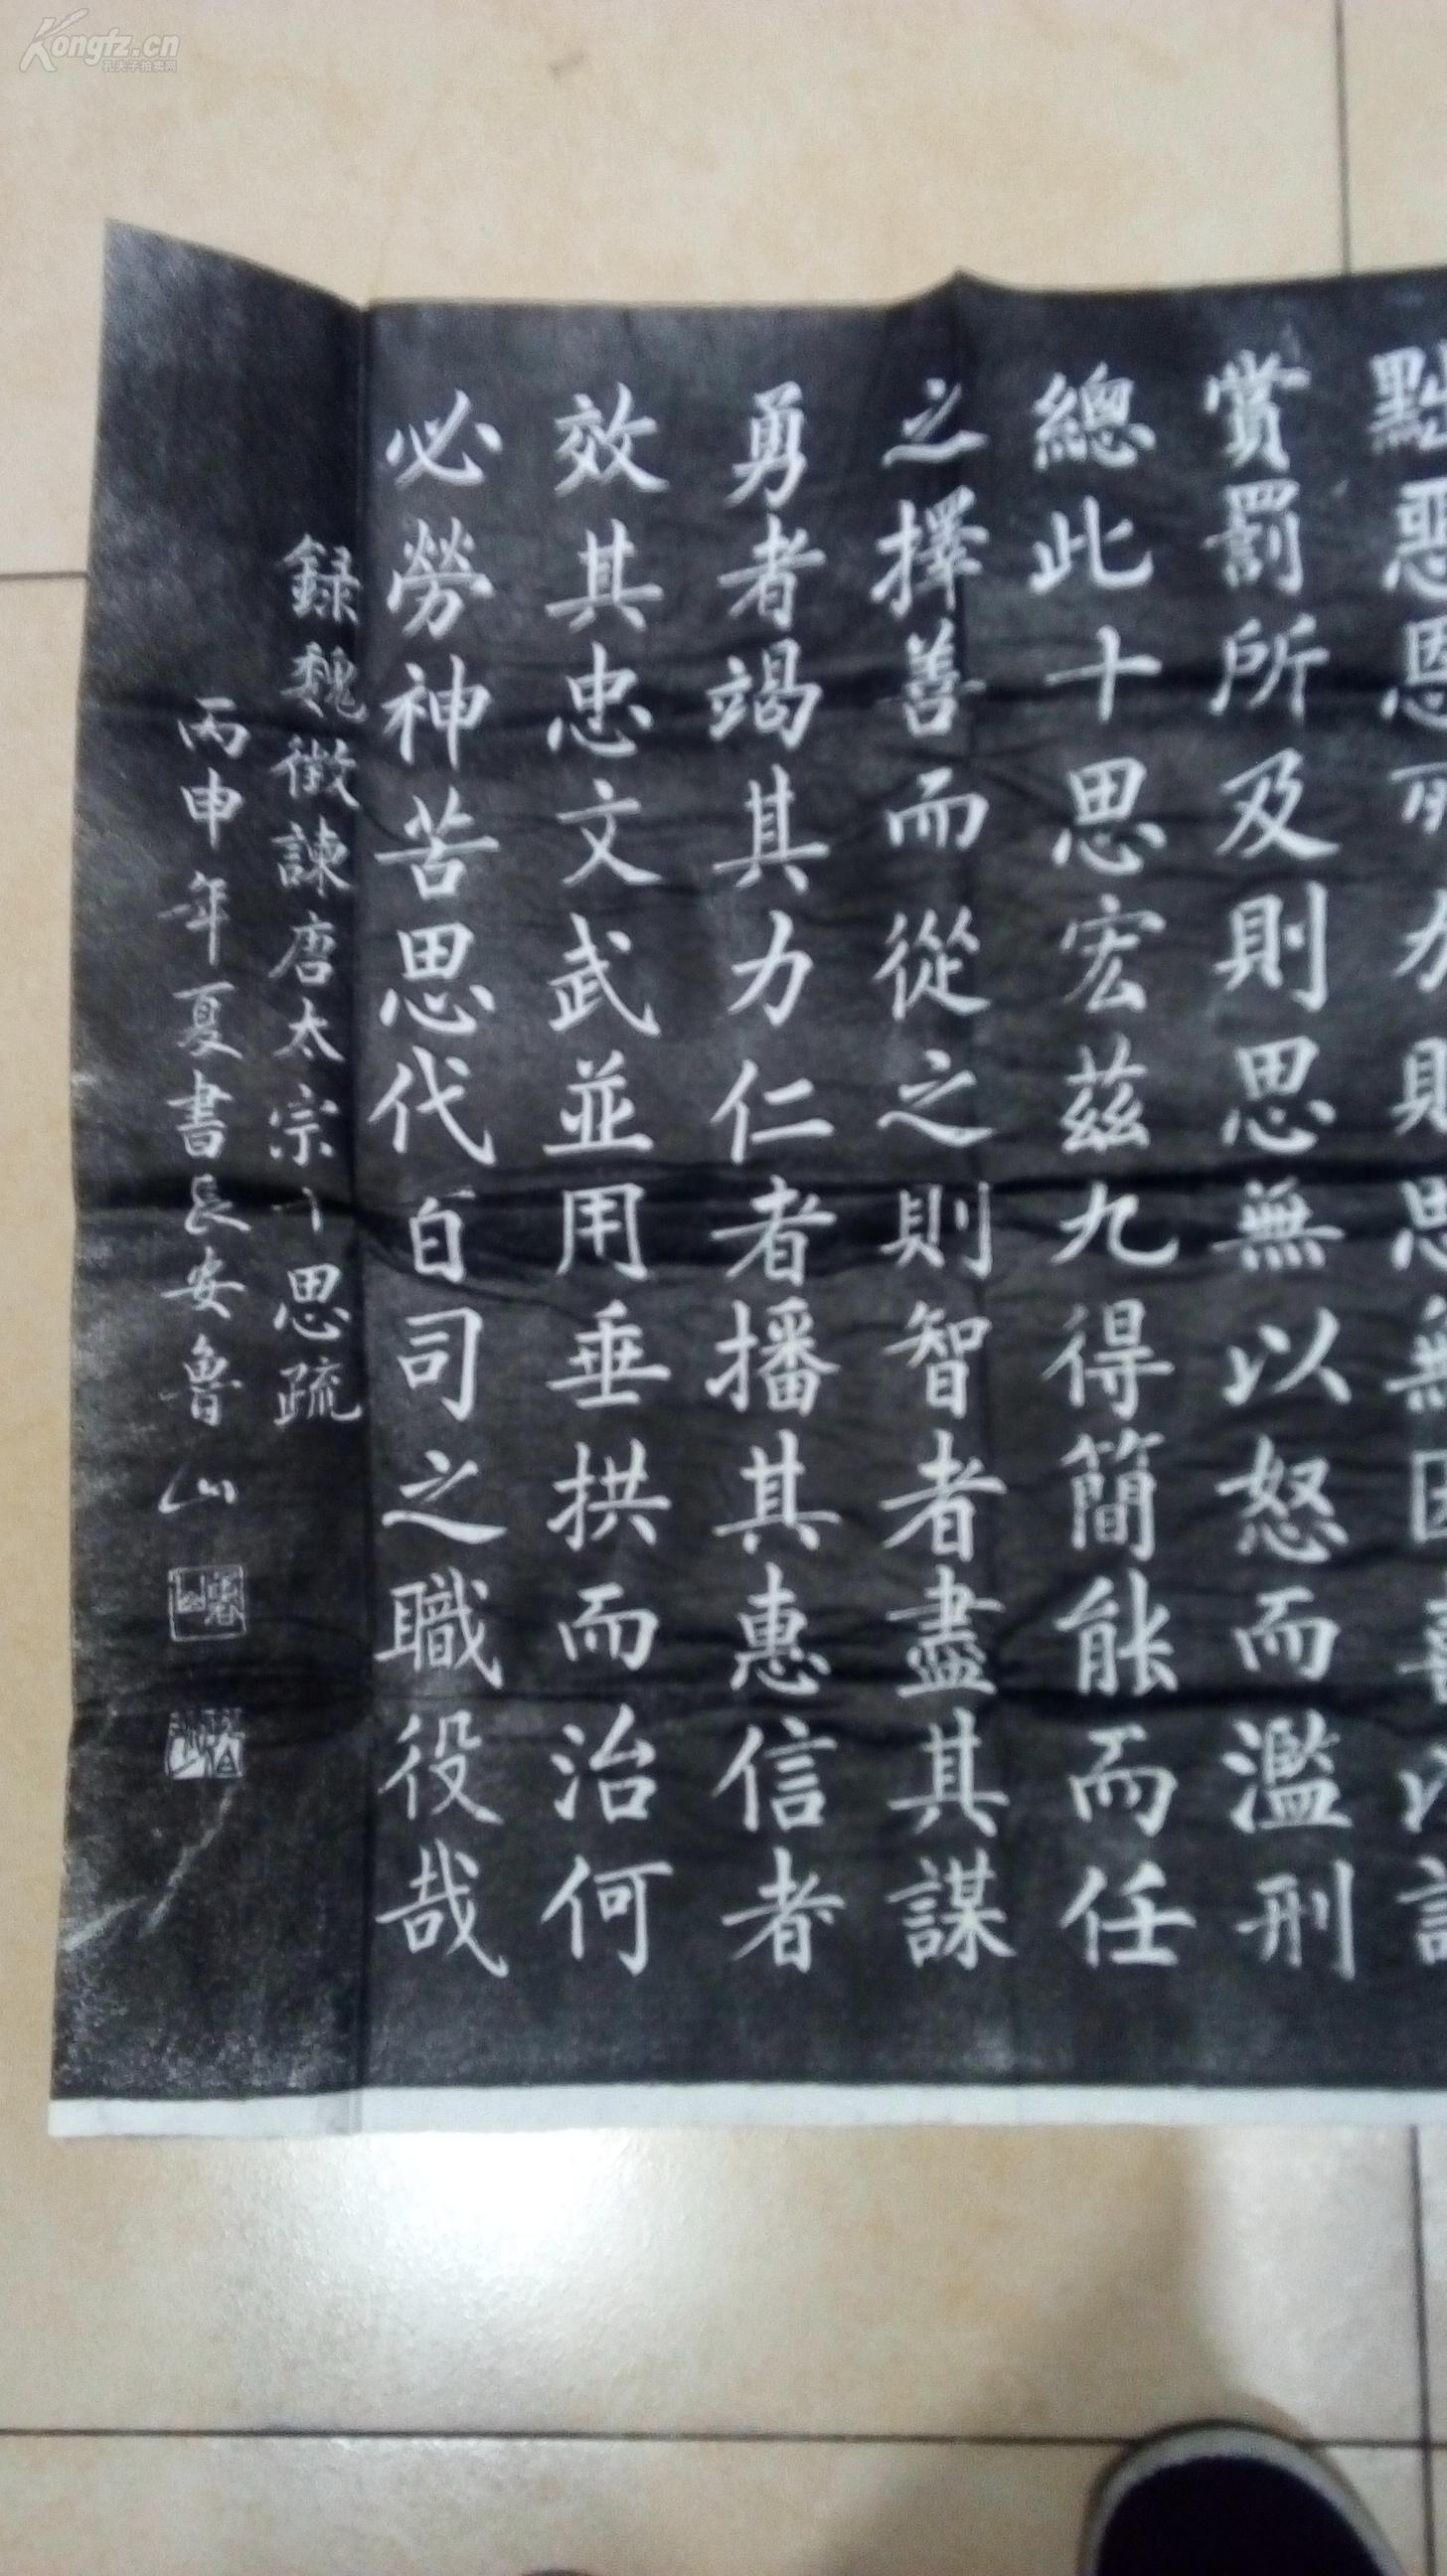 黜惡恩所加則思無因喜以
賞罰所及則思無以怒而濫刑
總此十思宏茲九得簡能而任
之擇善而從之則智者盡其謀
勇者竭其力仁者播其惠信者
效其忠文武並用垂拱而治何
必勞神苦思代百司之職役哉
録魏徵諫唐太宗十思疏
丙申年夏書長安魯山
Kongfz.cn
孔夫子拍卖网